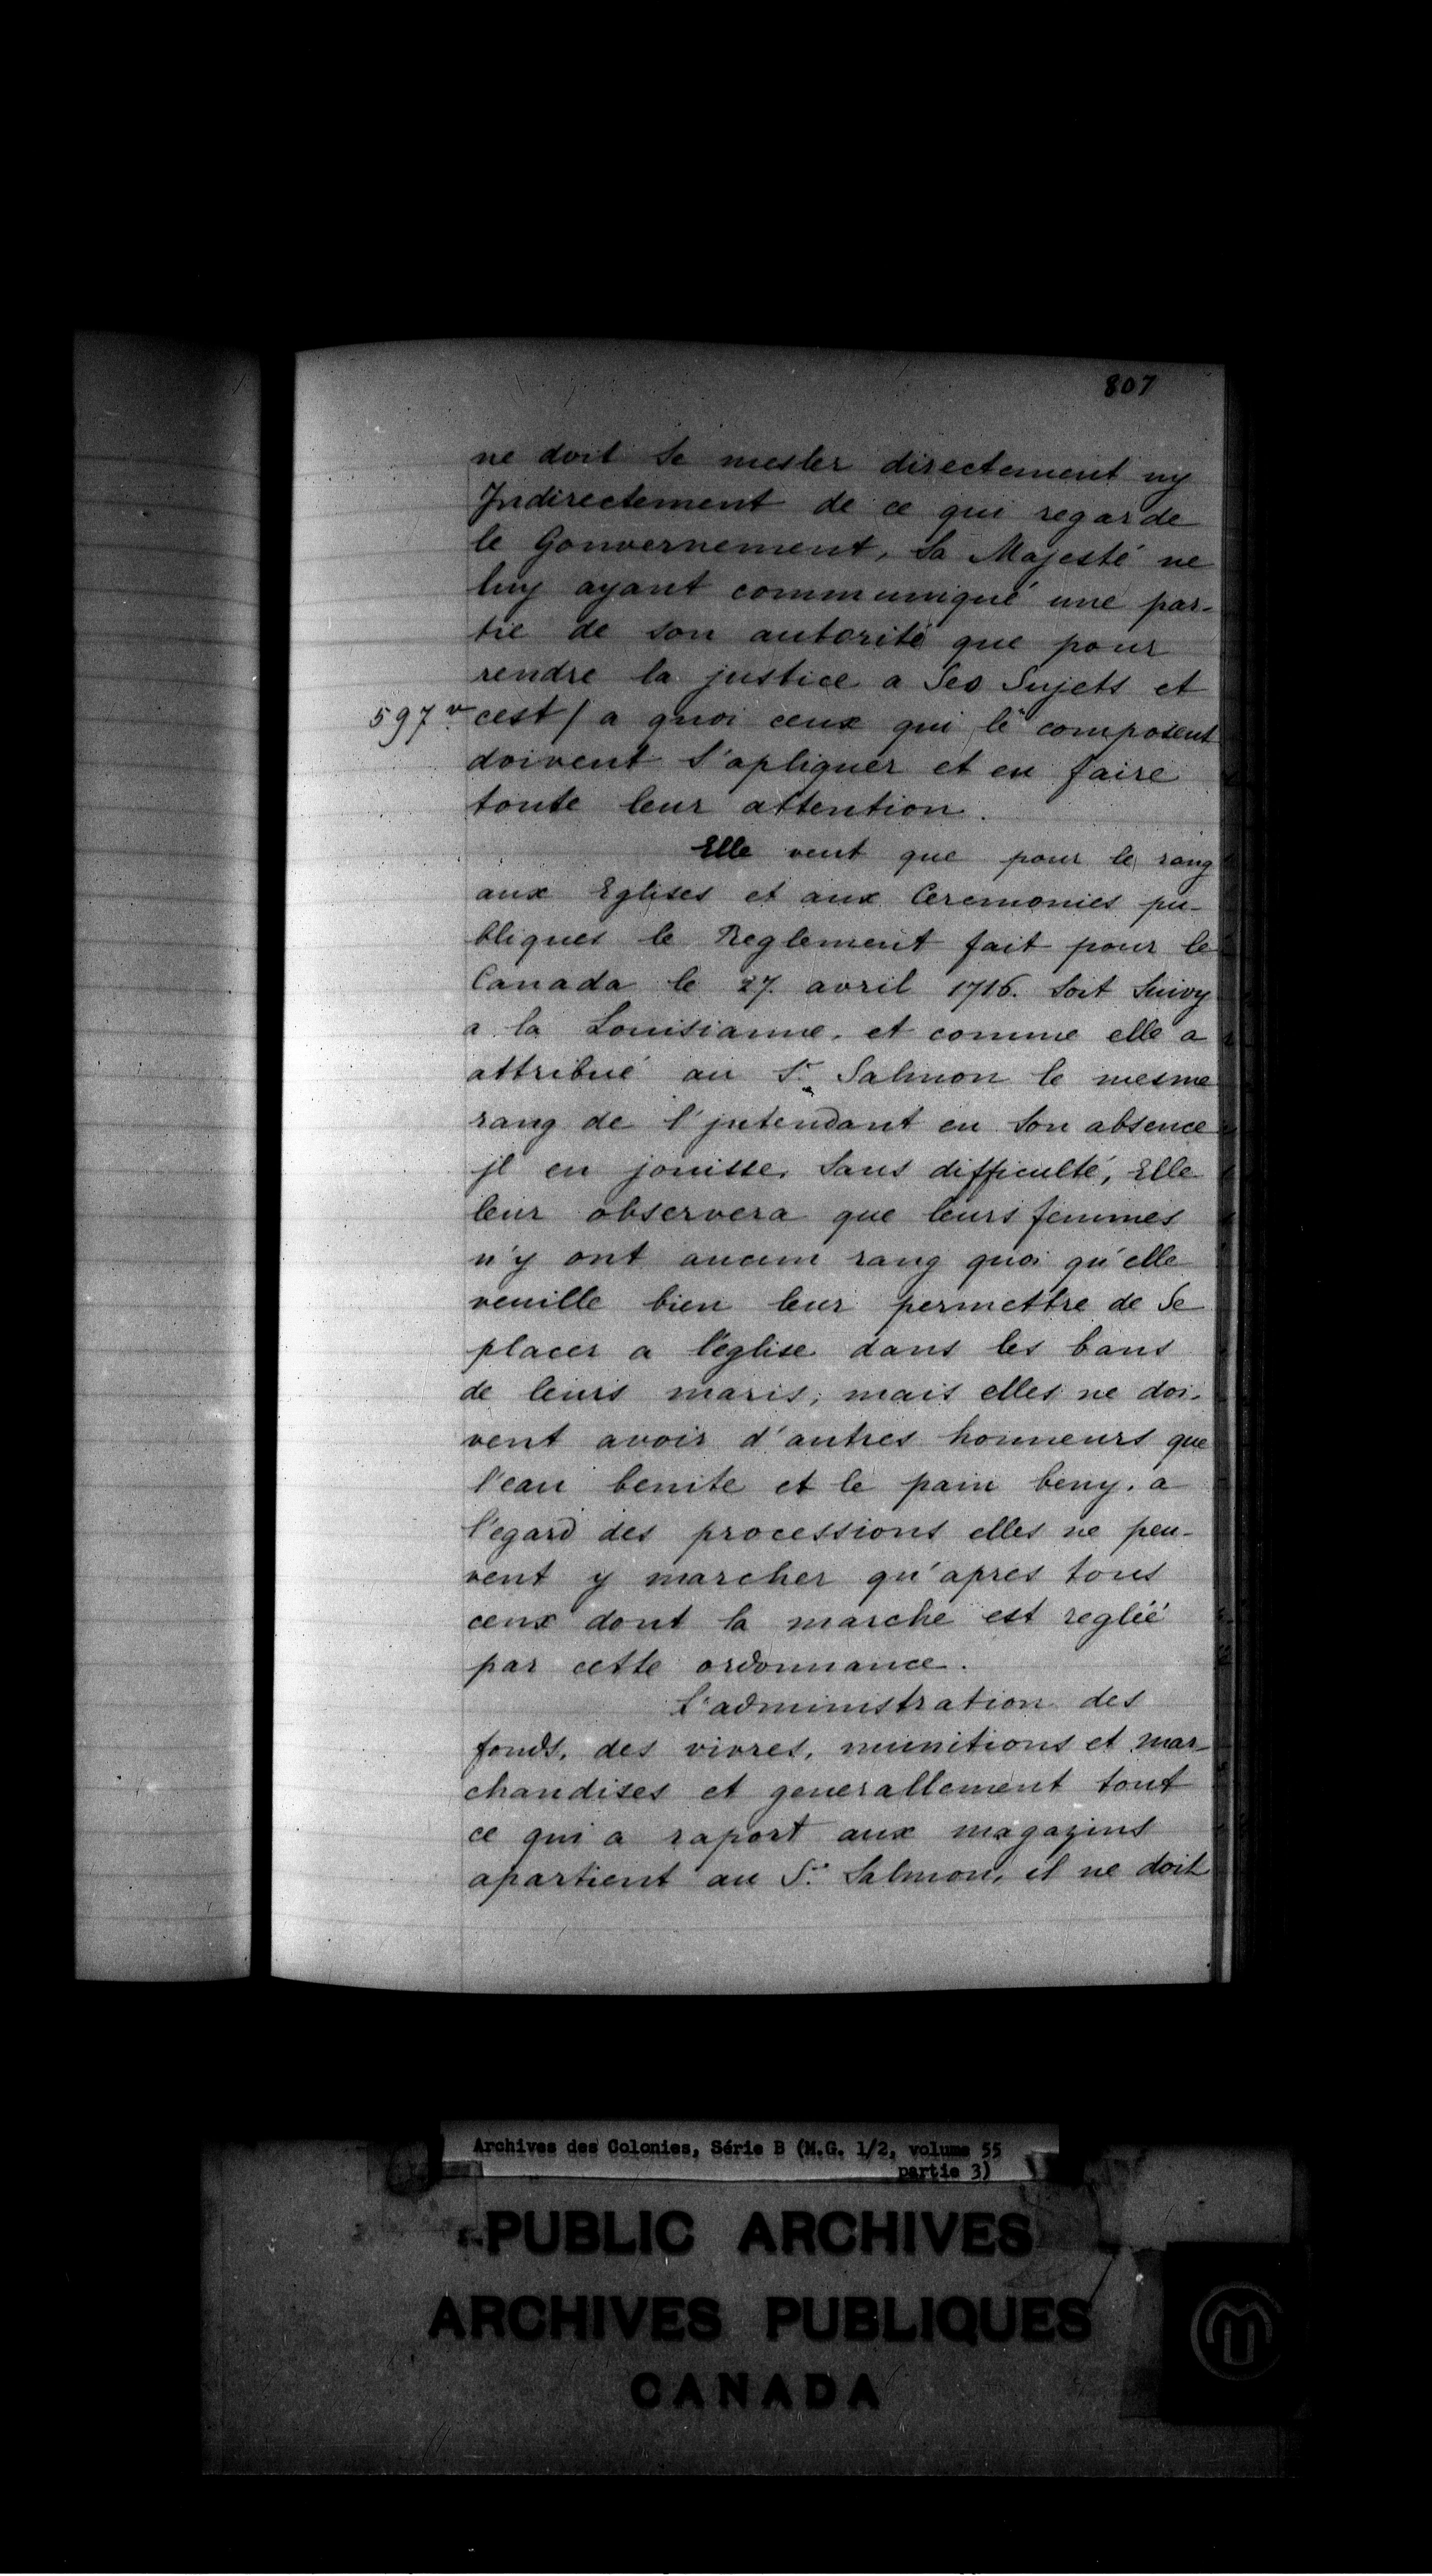 807
ne doit se mesler directement ny
Indirectement de ce qui regarde
le Gouvernement, Sa Majesté ne
luy ayant communiqué une par-
tie de son autorité que pour
rendre la justice a Ses Sujets et
597 v. cest / a quoi ceux qui le composent
doivent s'apliquer et en faire
toute leur attention.
Elle veut que pour le rang
aux Eglises et aux Ceremonies pu-
bliques le Reglement fait pour le
Canada le 27. avril 1716. Soit Suivy
a la Louisianne, et comme elle a
attribué au S.r Salmon le mesme
rang de l'jntendant en Son absence
jl en jouisse. Sans difficulté, Elle
leur observera que leurs femmes
n'y ont aucun rang quoi qu'elle
veuille bien leur permettre de Se
placer a l'église dans les bans
de leurs maris, mais elles ne doi-
vent avoir d'autres honneurs que
l'eau benite et le pain beny. a
l'egard des processions elles ne peu-
vent y marcher qu'apres tous
ceux dont la marche est reglée
par cette ordonnance.
L'administration des
fonds, des vivres, munitions et mar-
chandises et generallement tout
ce qui a raport aux magazins
apartient au S.r Salmon, il ne doit
Archives des Colonies, Série B (M.G. 1/2, volume 55
partie 3)
PUBLIC ARCHIVES
ARCHIVES PUBLIQUES
CANADA